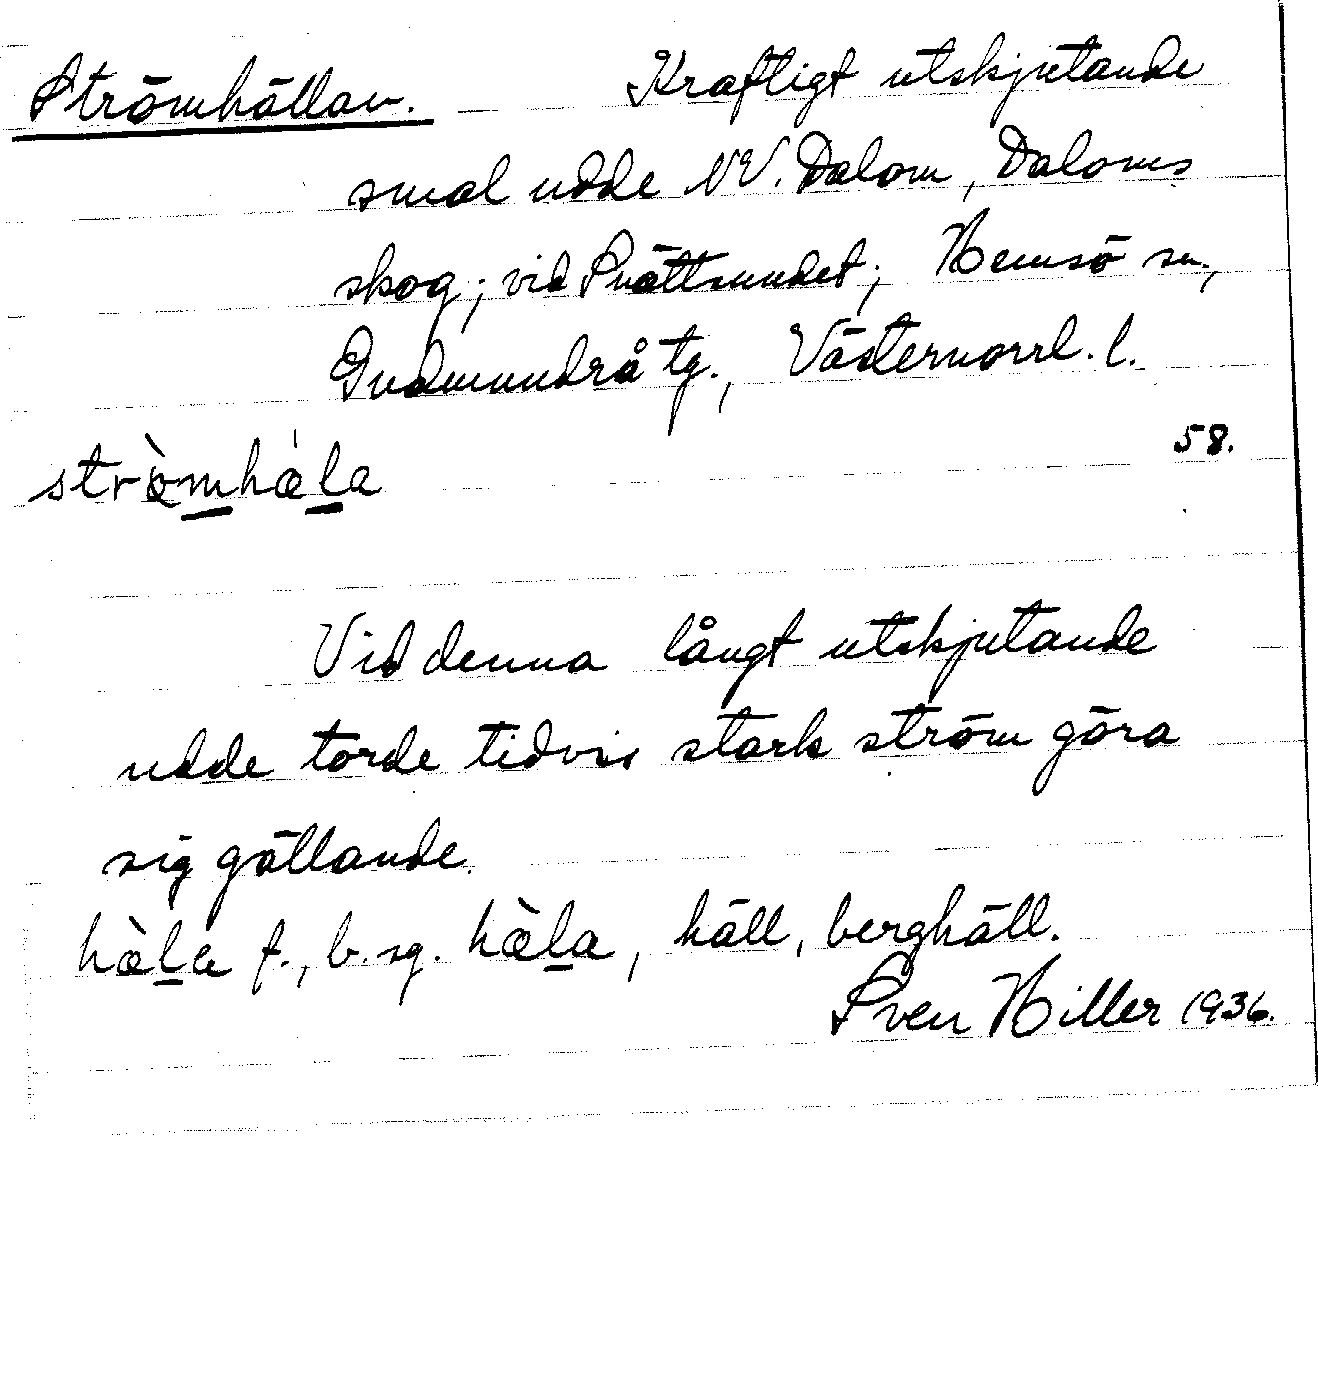 Strömhällan. Kraftligt utskjutande
smal udde NV. Dalom, Daloms
skog; vid Snättsundet; Hemsö sn,
Gudmundrå tg., Västernorrl. l.
58.
strö̀mhǽla
Vid denna långt utskjutande
udde torde tidvis stark ström göra
sig gällande.
hæ̀la f., b. sg. hæ̀la, häll, berghäll.
Sven Hiller 1936.